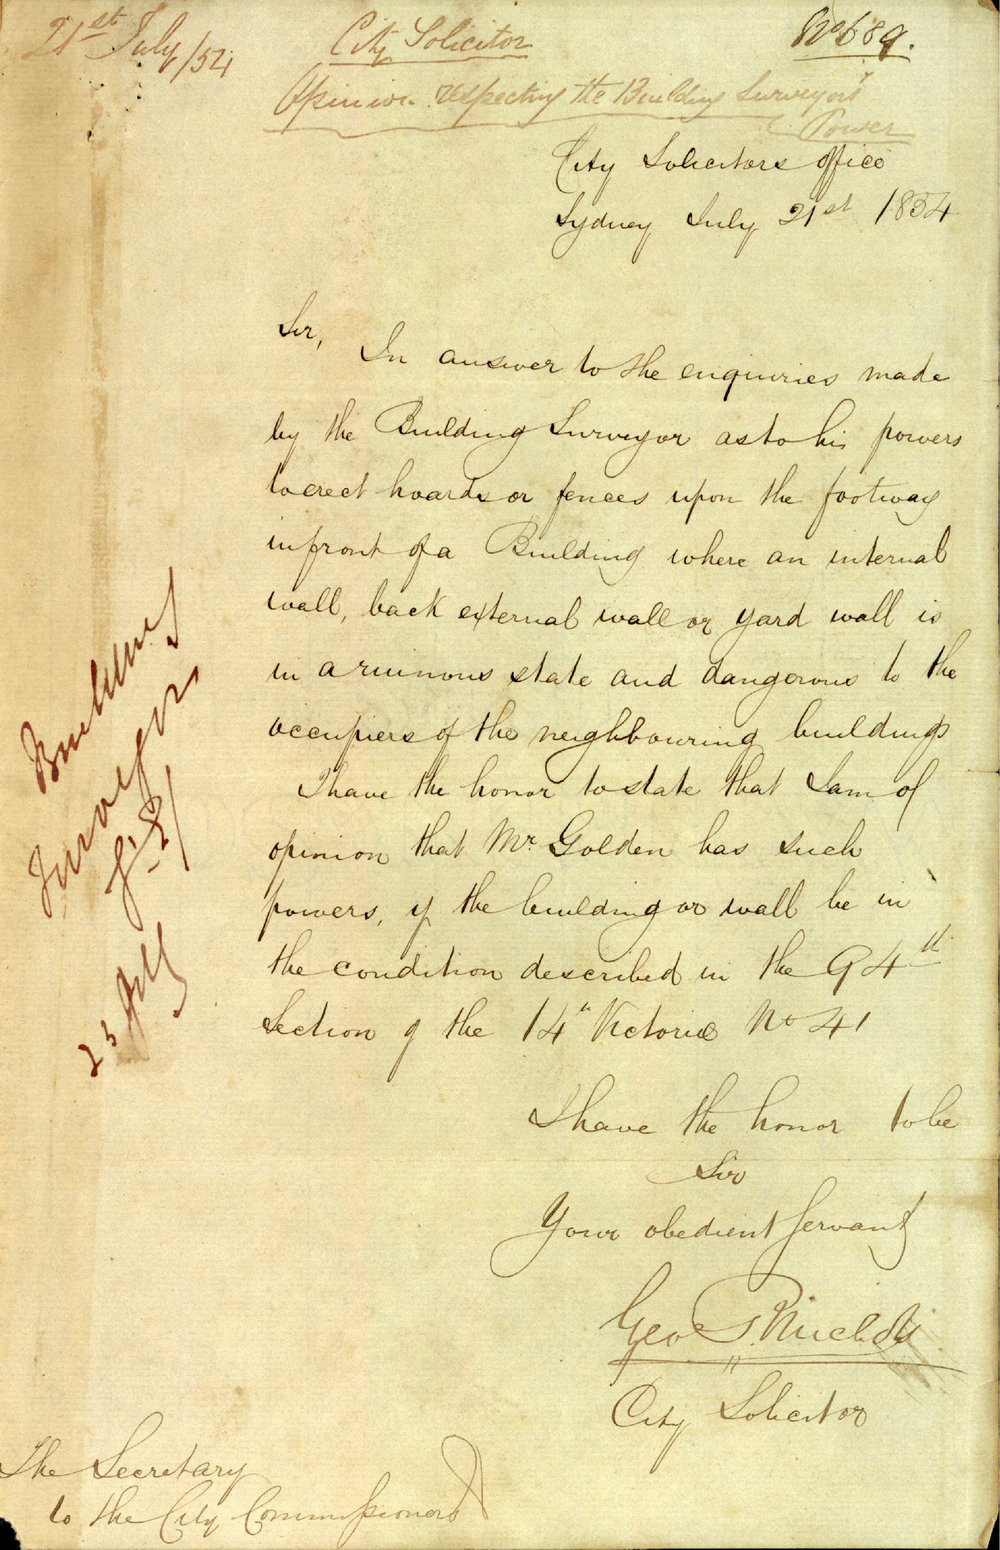 21st July/54
City Solicitor
No 689.
Opinion respecting the Building Surveyor's
Power
City Solicitors office
Sydney July 21st 1854
Sir,
In answer to the enquiries made
by the Building Surveyor as to his powers
to erect hoards or fences upon the footway
in front of a Building where an internal
wall, back external wall or yard wall is
in a ruinous state and dangerous to the
occupiers of the neighbouring buildings
I have the honor to state that I am of
opinion that Mr. Golden has such
powers, if the building or wall be in
the condition described in the 94th
Section of the 14th Victoria No 41
I have the honor to be
Sir
Your obedient Servant
Geo
City Solicitor
The Secretary
to the City Commissioners
Building
Surveyor
23 July